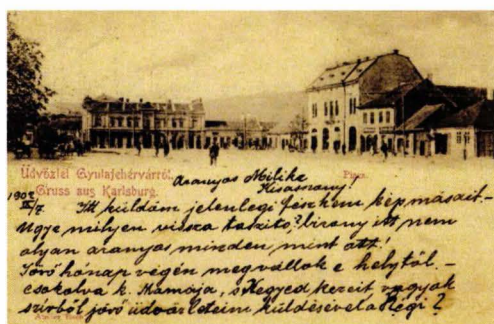 Üdvözlet Gyulafehérvárról.
Gruss aus Karlsburg.
Piacz.
Aranyos Milike
Kisasszony!
1902
III/7. Itt küldöm jelenlegi fészkem kép másait -
Ugye milyen vissza taszitó? bizony itt nem
olyan aranyos minden mint ott!
Jövő hónap végén meg vállok e helytől. -
csokolva k. Mamája, s Kegyed kezeit vagyok
szívből jövő üdvözleteim küldésével a Régi?